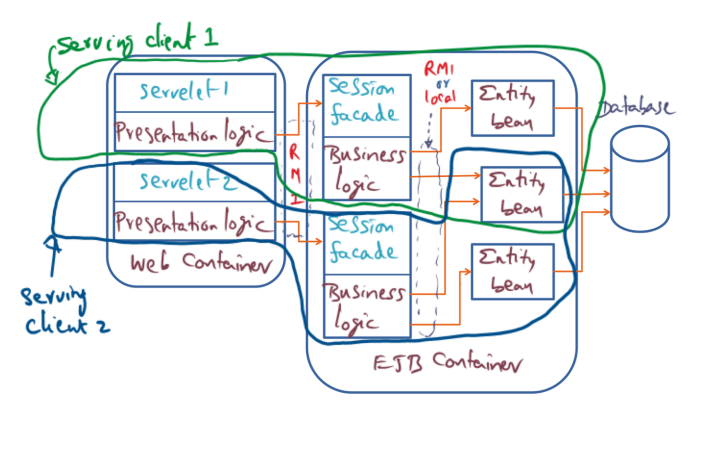 Serving client 1
Servelet-1
Presentation logic
Servelet-2
Presentation logic
Web Container
Serving
Client 2
R
M
I
Session
facade
Business
logic
Session
facade
Business
logic
RMI
or
local
Entity
bean
Entity
bean
Entity
bean
EJB Container
Database